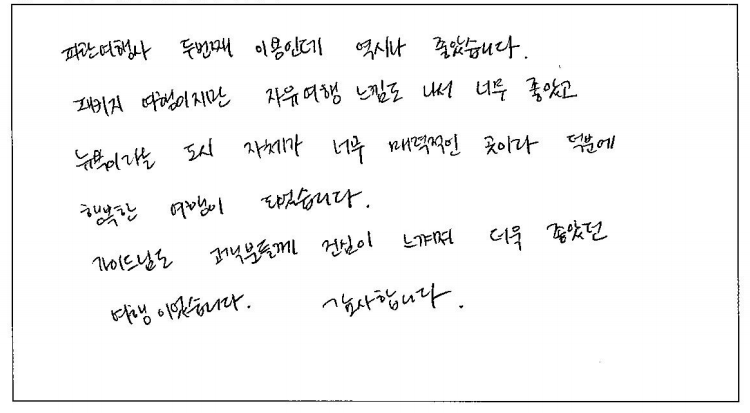 파란여행사 두번째 이용인데 역시나 좋았습니다.
패키지 여행이지만 자유여행 느낌도 나서 너무 좋았고
뉴욕이라는 도시 자체가 너무 매력적인 곳이라 덕분에
행복한 여행이 되었습니다.
가이드님도 고객분들께 진심이 느껴져 더욱 좋았던
여행이었습니다. 감사합니다.